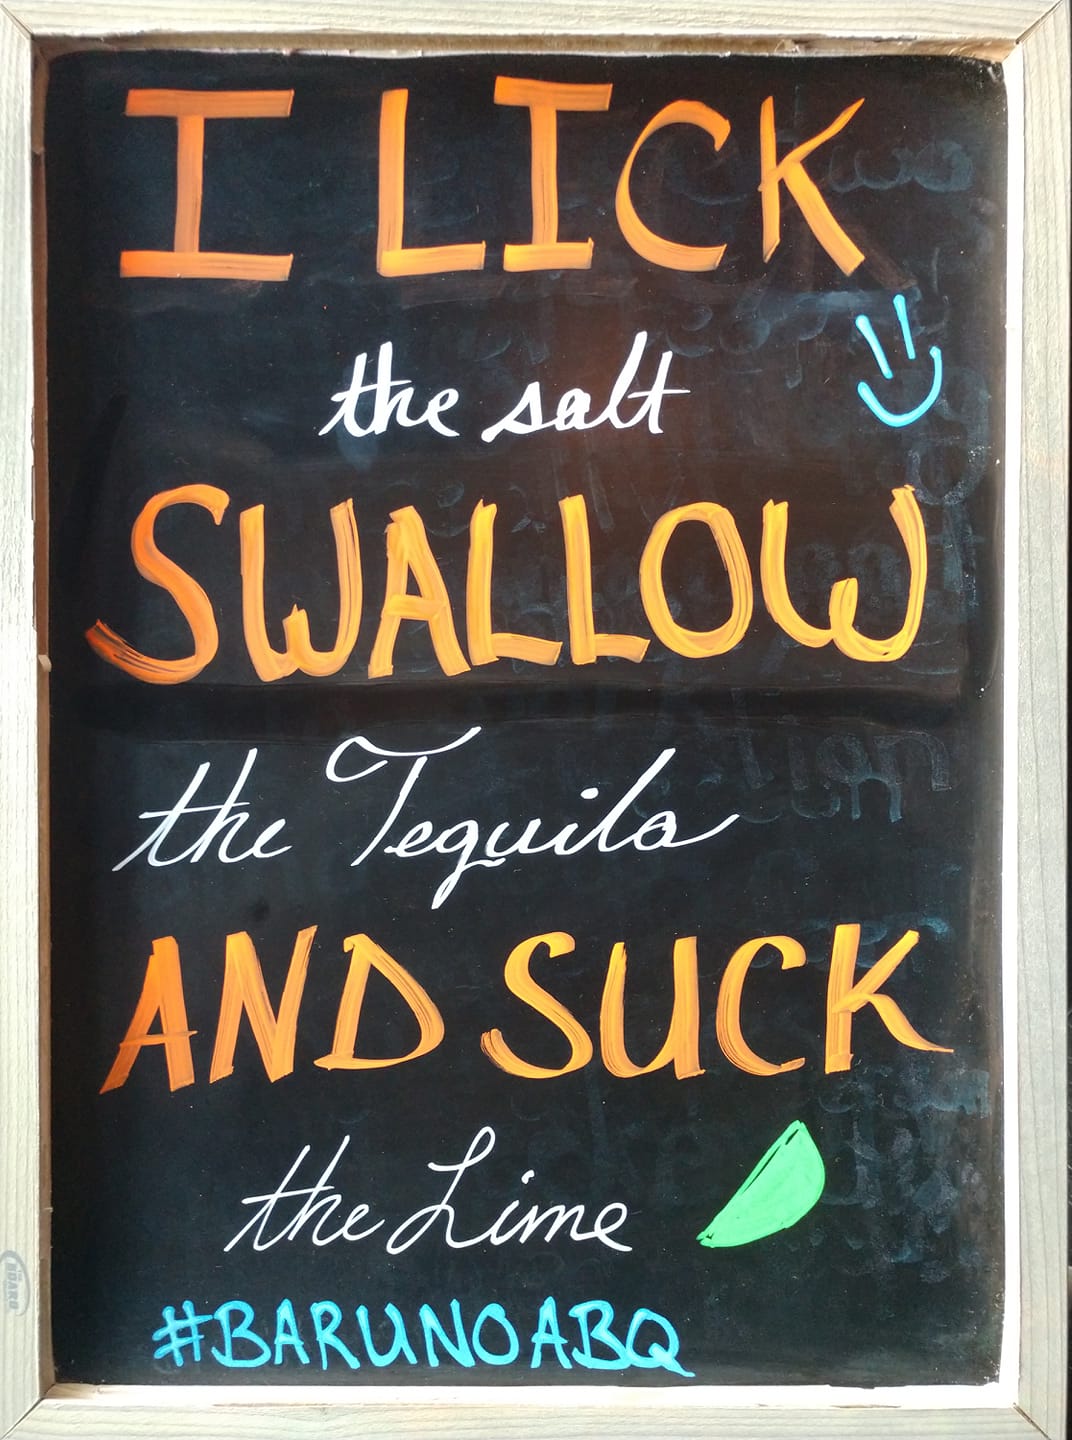 I LICK
the salt
SWALLOW
the Tequila
AND SUCK
the Lime
#BARUNOABQ